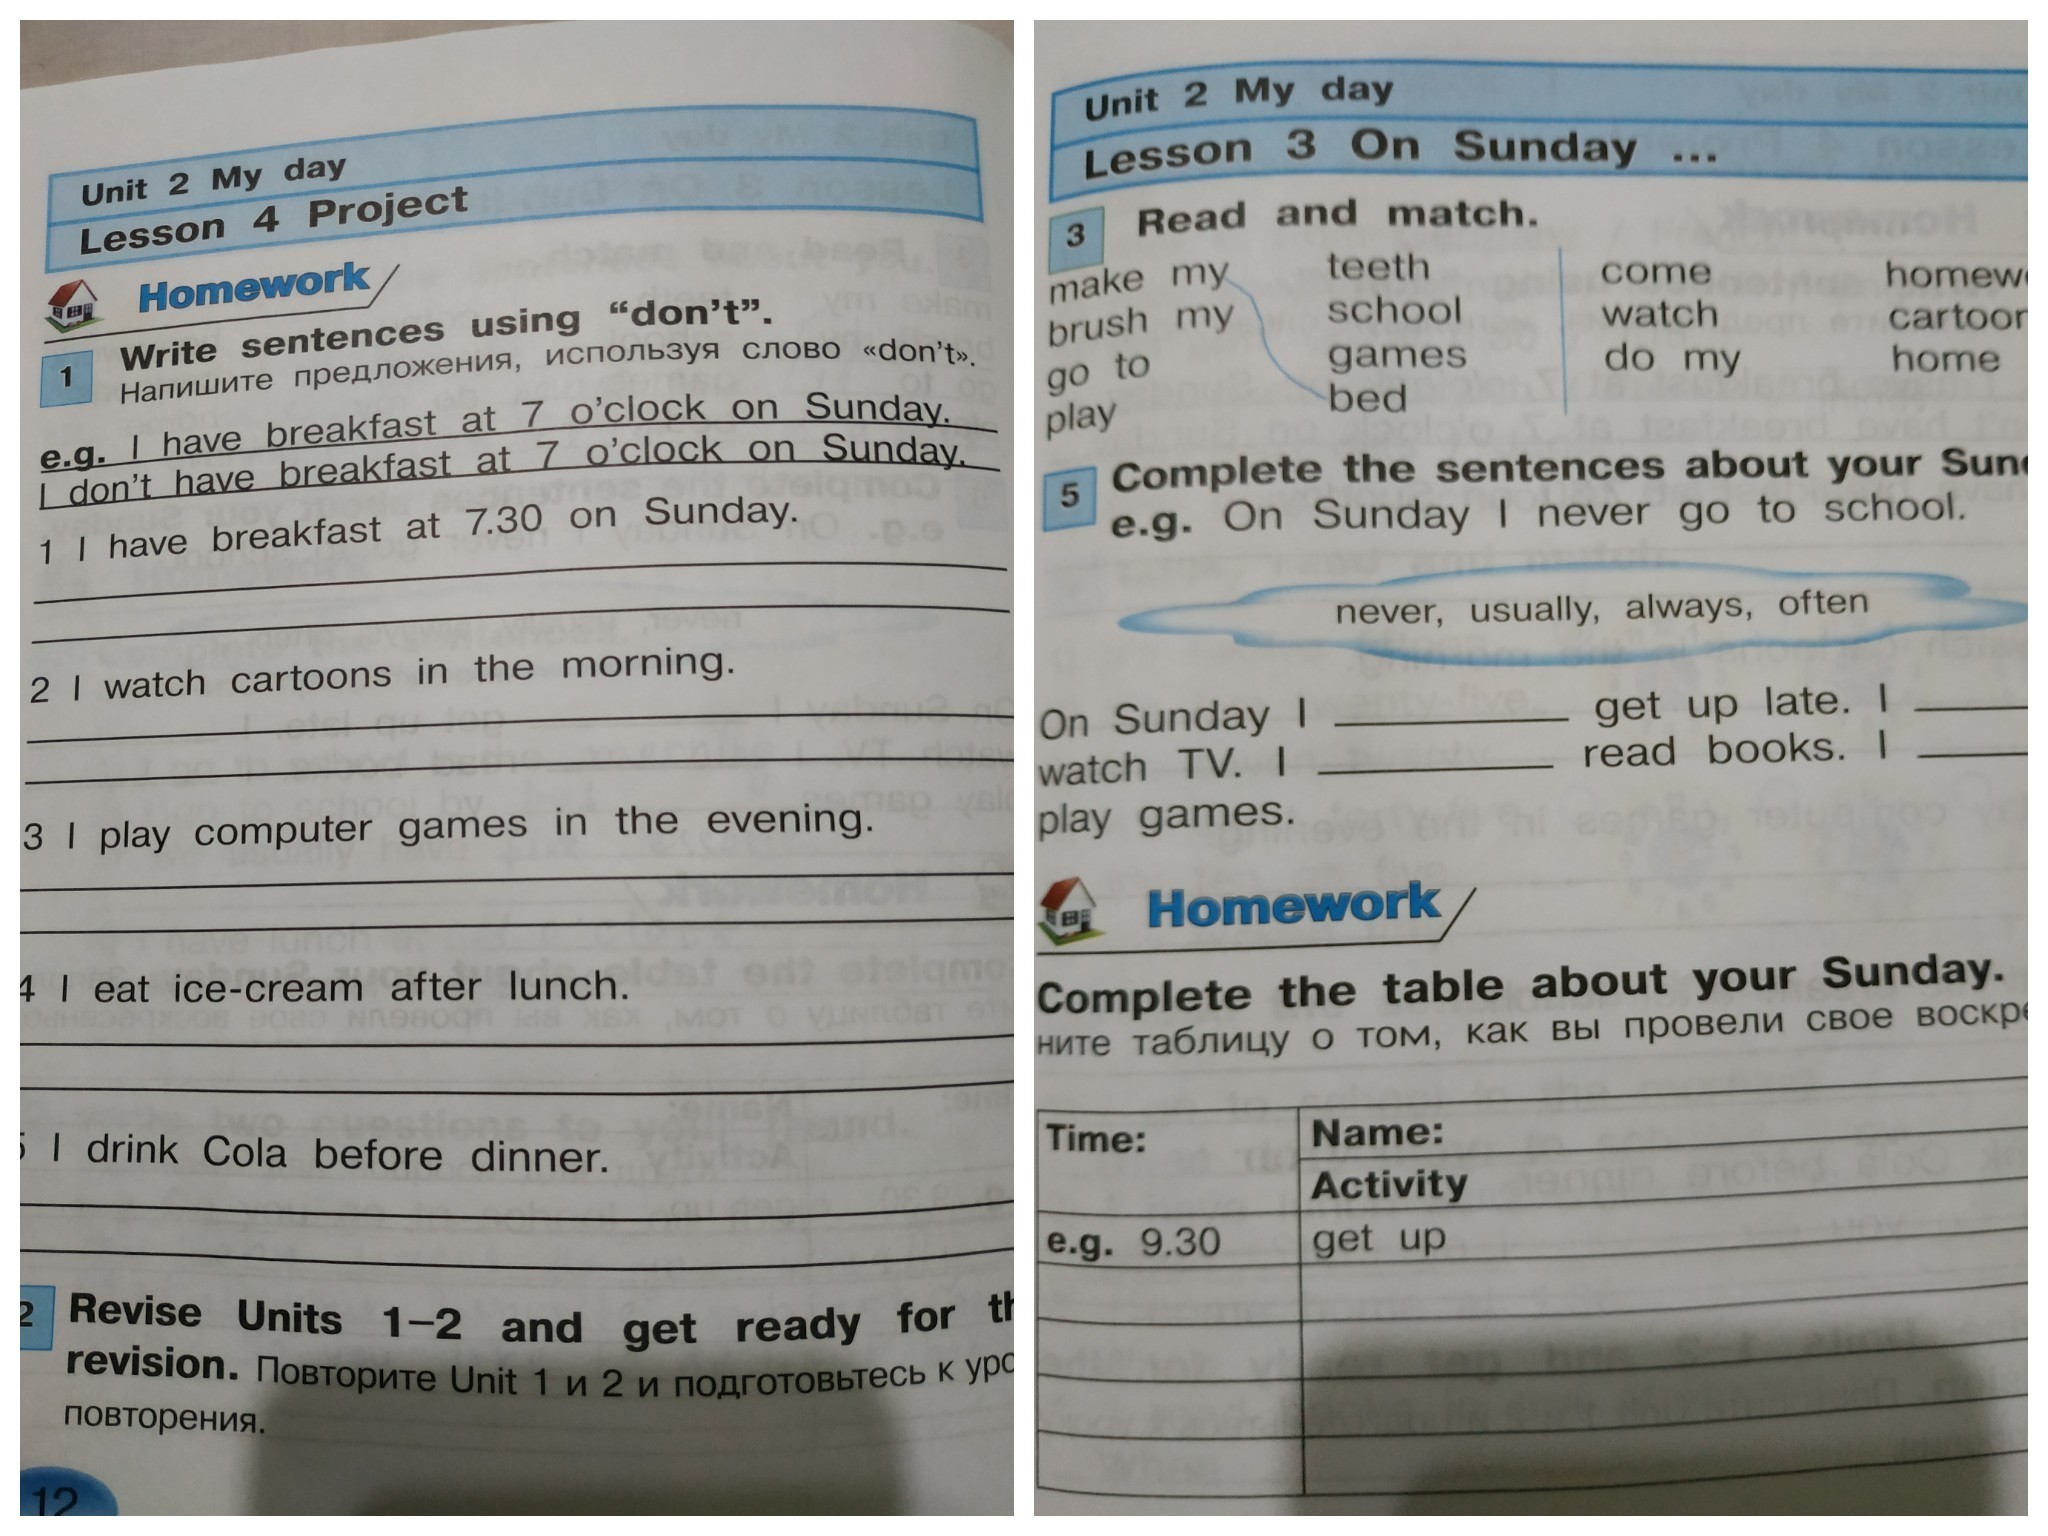 Unit 2 My day
Lesson 4 Project
Homework
1 Write sentences using “don’t”.
Напишите предложения, используя слово «don’t».
e.g. I have breakfast at 7 o’clock on Sunday.
I don’t have breakfast at 7 o’clock on Sunday.
1 I have breakfast at 7.30 on Sunday.
2 I watch cartoons in the morning.
3 I play computer games in the evening.
4 I eat ice-cream after lunch.
5 I drink Cola before dinner.
2 Revise Units 1–2 and get ready for
revision. Повторите Unit 1 и 2 и подготовьтесь к
повторения.
12
Unit 2 My day
Lesson 3 On Sunday ...
3 Read and match.
make my teeth come
brush my school watch
go to games do my home
play bed
5 Complete the sentences about your
e.g. On Sunday I never go to school.
never, usually, always, often
On Sunday I get up late. I
watch TV. I read books. I
play games.
Homework
Complete the table about your Sunday.
ните таблицу о том, как вы провели свое
Time: Name:
Activity
e.g. 9.30 get up